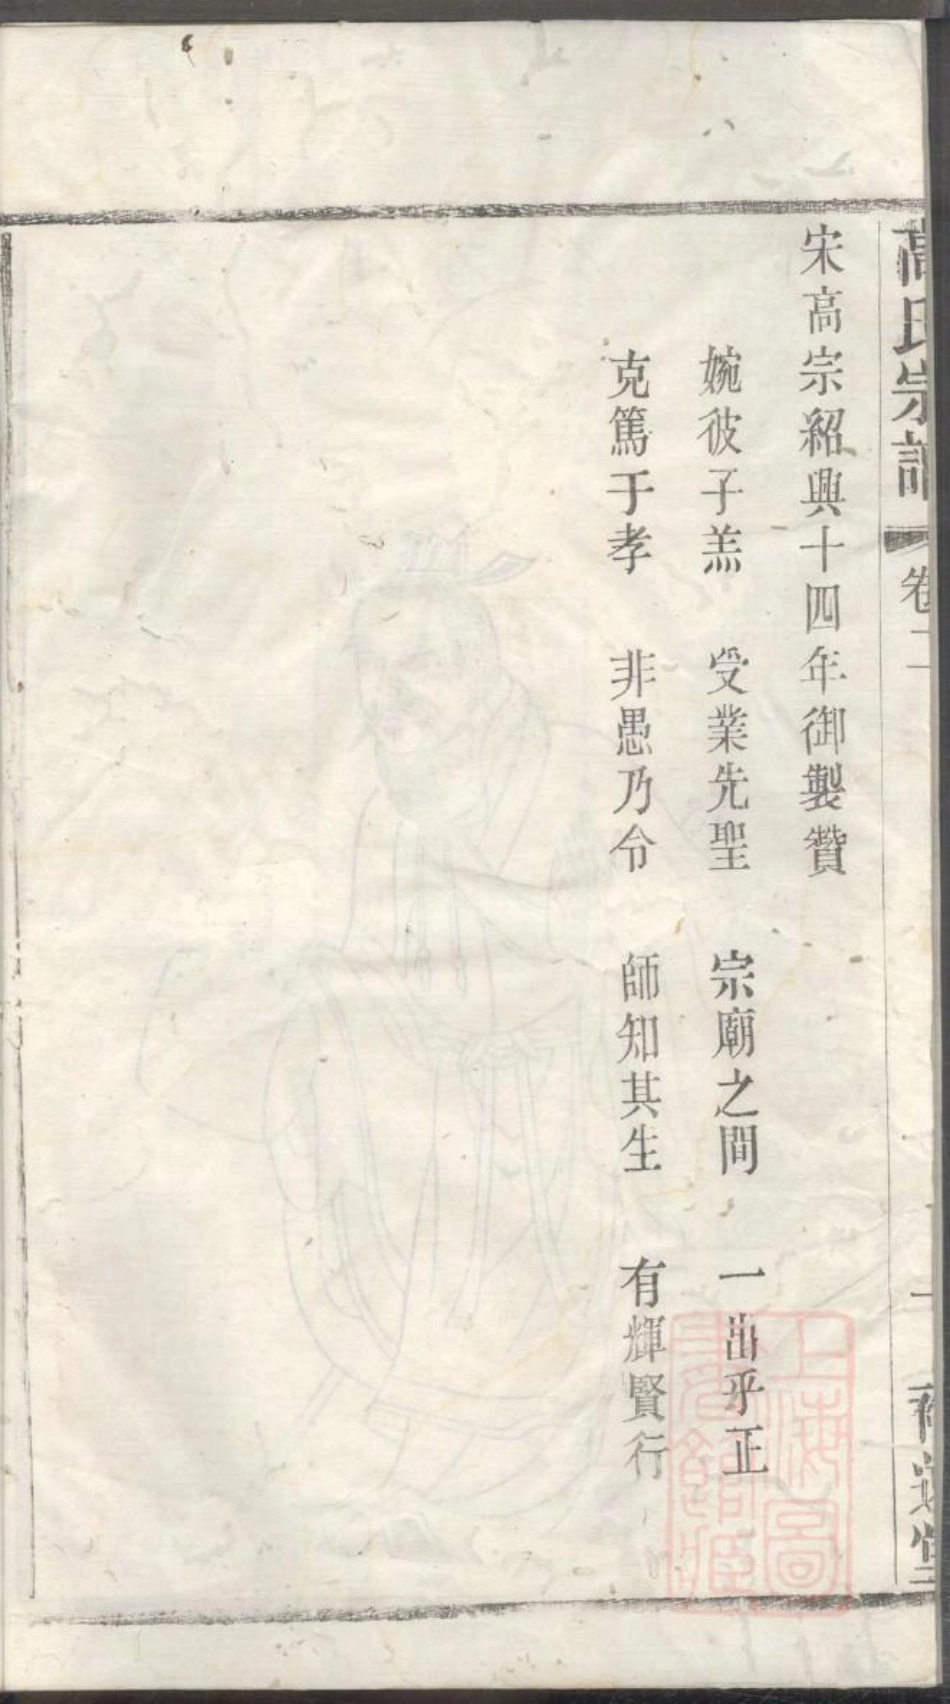 高氏宗譜
卷二
一
宋高宗紹興十四年御製贊
婉彼子羔 受業先聖 宗廟之間 一出乎正
克篤于孝 非愚乃令 師知其生 有輝賢行
上海圖